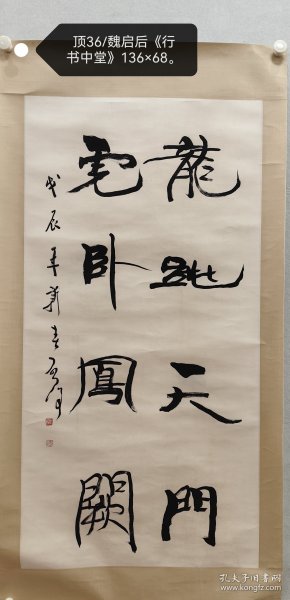 顶36/魏启后《行
书中堂》136×68。
龍跳天門
虎卧鳳闕
戊辰年新春启后
孔夫子旧书网